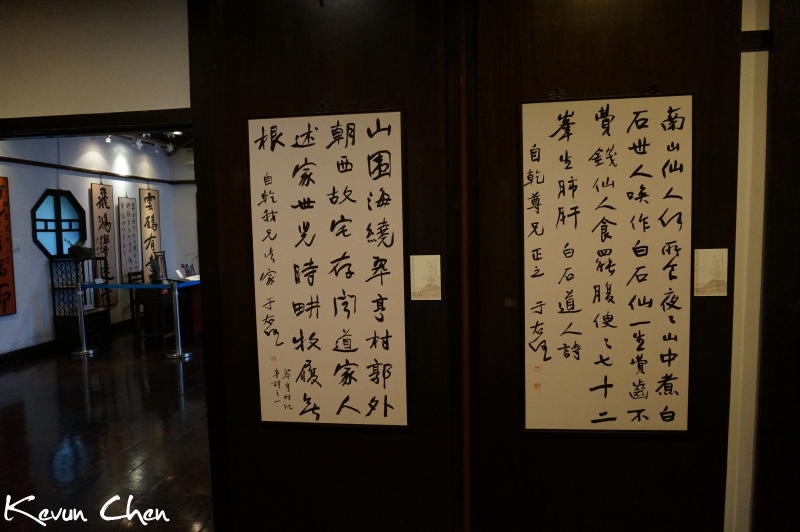 南山仙人何所食夜〻山中煮白
石世人喚作白石仙一生費齒不
費錢仙人食罷腹便〻七十二
峯生肺肝 白石道人詩
自乾尊兄正之 于右任
山围海繞翠亨村郭外
朝西故宅存聞道家人
述家世兒時畊牧履無
根
自乾我兄法家 于右任
翠亨村紀
事詩之一
雲鶴有奇
飛鴻
Kevun Chen